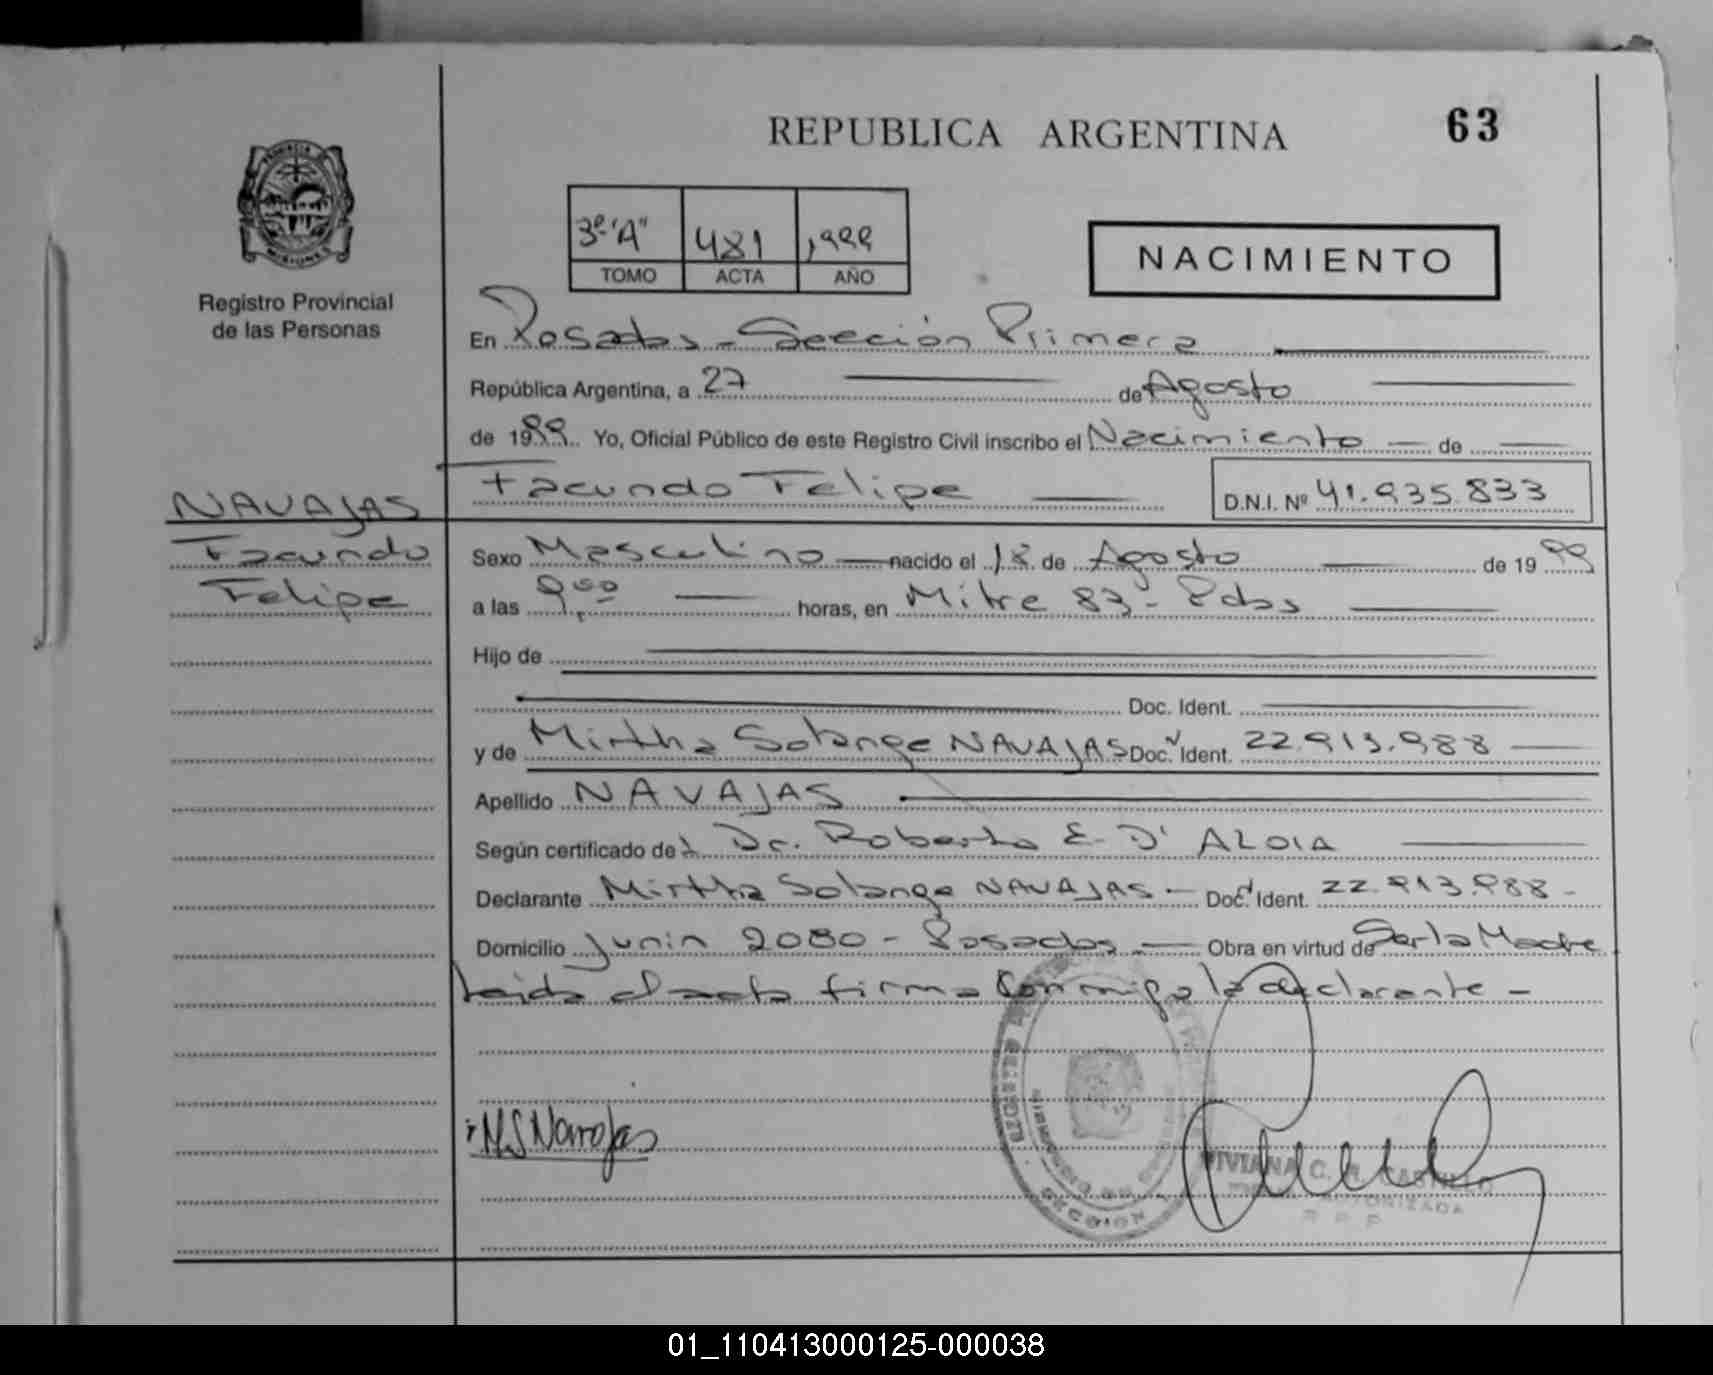 REPUBLICA ARGENTINA
63
PROVINCIA DE
MISIONES
Registro Provincial
de las Personas
3º "A" 481 1999
TOMO ACTA AÑO
NACIMIENTO
En Posadas - Sección Primera
República Argentina, a 27 de Agosto
de 1999 Yo, Oficial Público de este Registro Civil inscribo el Nacimiento de
Facundo Felipe D.N.I. Nº 41.935.833
NAVAJAS
Facundo
Felipe
Sexo Masculino nacido el 18 de Agosto de 1999
a las 9,00 horas, en Mitre 83 - Pdas
Hijo de
Doc. Ident.
y de Mirtha Solange NAVAJAS Doc. Ident. 22.913.988
Apellido NAVAJAS
Según certificado del Dr. Roberto E. D' ALOIA
Declarante Mirtha Solange NAVAJAS - Doc. Ident. 22.913.988 -
Domicilio Junin 2080 - Posadas - Obra en virtud de Ser la Madre
Leida el acta firma conmigo la declarante -
MS Navajas
SECCION
VIVIANA C.
AUTORIZADA
R P P
01_110413000125-000038